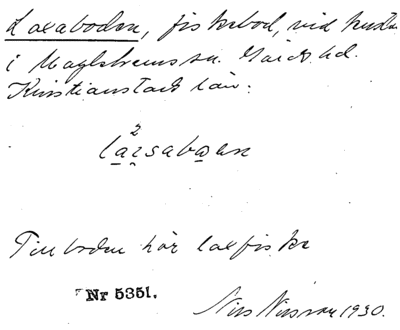 Laxaboden, fiskebod, vid kusten
i Maglehems sn. Gärds hd.
Kristianstads län.
2
Till boden hör laxfiske
Nr 5351.
Nils Nilsson 1930.